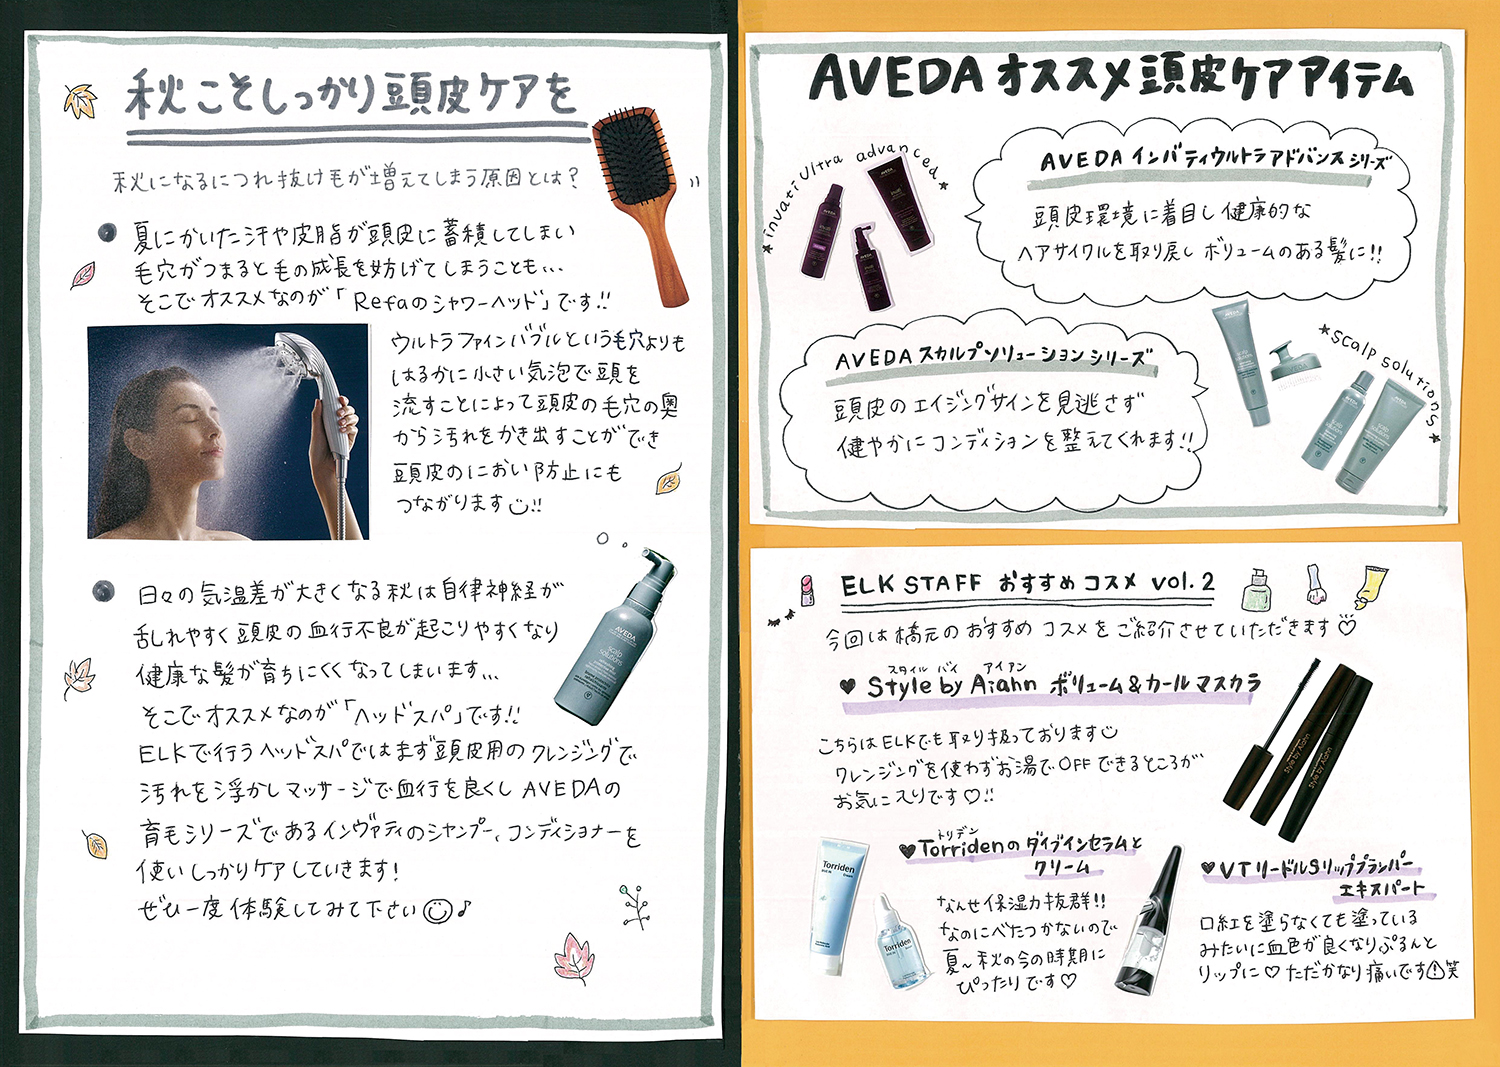 秋こそしっかり頭皮ケアを
秋になるにつれ抜け毛が増えてしまう原因とは?
● 夏にかいた汗や皮脂が頭皮に蓄積してしまい
毛穴がつまると毛の成長を妨げてしまうことも…
そこでオススメなのが「Refaのシャワーヘッド」です!!
ウルトラファインバブルという毛穴よりも
はるかに小さい気泡で頭を
流すことによって頭皮の毛穴の奥
から汚れをかき出すことができ
頭皮のにおい防止にも
つながります!!
● 日々の気温差が大きくなる秋は自律神経が
乱れやすく頭皮の血行不良が起こりやすくなり
健康な髪が育ちにくくなってしまいます…
そこでオススメなのが「ヘッドスパ」です!!
ELKで行うヘッドスパではまず頭皮用のクレンジングで
汚れを浮かしマッサージで血行を良くしAVEDAの
育毛シリーズであるインヴァティのシャンプー、コンディショナーを
使いしっかりケアしていきます!
ぜひ一度体験してみて下さい♪
AVEDA
scalp
solutions
AVEDAオススメ頭皮ケアアイテム
★invati Ultra advanced★
AVEDAインバティウルトラアドバンスシリーズ
頭皮環境に着目し健康的な
ヘアサイクルを取り戻しボリュームのある髪に!!
AVEDAスカルプソリューションシリーズ
頭皮のエイジングサインを見逃さず
健やかにコンディションを整えてくれます!!
★scalp solutions★
ELK STAFF おすすめコスメ vol.2
今回は橋元のおすすめコスメをご紹介させていただきます♡
スタイル バイ アイアン
♥ Style by Aiahn ボリューム&カールマスカラ
こちらはELKでも取り扱っております
クレンジングを使わずお湯でOFFできるところが
お気に入りです♡!!
Style by Aiahn
Style by Aiahn
トリデン
♥Torridenのダイブインセラムと
クリーム
Torriden
Torriden
なんせ保湿力抜群!!
なのにべたつかないので
夏〜秋の今の時期に
ぴったりです♡
♥VTリードルSリッププランパー
エキスパート
口紅を塗らなくても塗っている
みたいに血色が良くなりぷるんと
リップに♡ ただかなり痛いです⚠笑